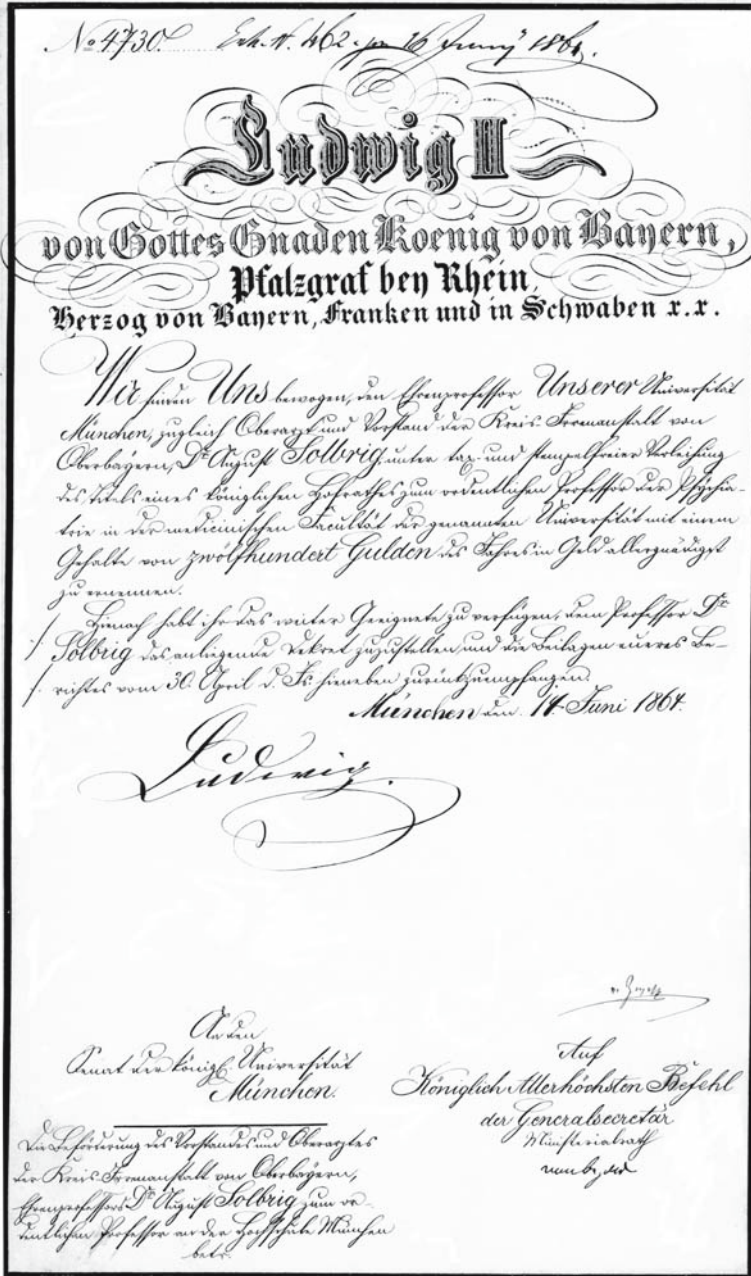 No 4730. Erh. N. 462. 16 Juny 1864.
Ludwig II
von Gottes Gnaden Koenig von Bayern,
Pfalzgraf bey Rhein,
Herzog von Bayern, Franken und in Schwaben x.x.
Wir finden Uns bewogen, den Ehrenprofessor Unserer Universität
München, zugleich Oberarzt und Vorstand der Kreis-Irrenanstalt von
Oberbayern, Dr. August Solbrig, unter tax- und stempelfreier Verleihung
des Titels eines königlichen Hofrathes zum ordentlichen Professor der Psychia-
trie in der medicinischen Facultät der genannten Universität mit einem
Gehalte von zwölfhundert Gulden des Jahres in Geld allergnädigst
zu ernennen.
Hienach habt ihr das weiter Geeignete zu verfügen, dem Professor Dr.
/. Solbrig das anliegende Dekret zuzustellen, und die Beilagen eueres Be-
/. richtes vom 30. April d. Js. hieneben zurückzuempfangen.
München den 14. Juni 1864.
Ludwig.
An den
Senat der königl. Universität
München.
Auf
Königlich Allerhöchsten Befehl
der Generalsecretär
Ministerialrath
Die Beförderung des Vorstandes und Oberarztes
der Kreis-Irrenanstalt von Oberbayern,
Ehrenprofessors Dr. August Solbrig zum or-
dentlichen Professor an der Hochschule München
betr.